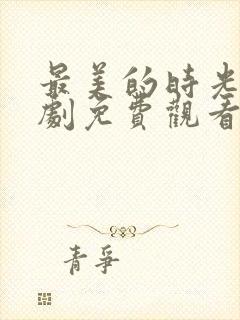 最美的時光
劇免費觀看
青爭